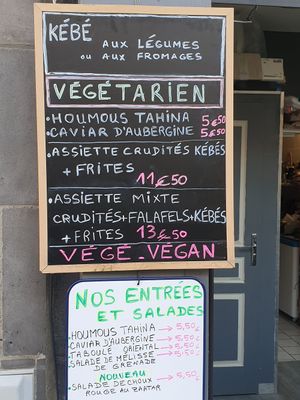 KÉBÉ
AUX LÉGUMES
OU AUX FROMAGES
VÉGÉTARIEN
• HOUMOUS TAHINA 5€50
• CAVIAR D'AUBERGINE 5€50
• ASSIETTE CRUDITÉS KÉBÉS
+ FRITES
11€50
• ASSIETTE MIXTE
CRUDITÉS+FALAFELS+KÉBÉS
+ FRITES 13€50
VÉGÉ-VÉGAN
NOS ENTRÉES
ET SALADES
• HOUMOUS TAHINA → 5,50€
• CAVIAR D'AUBERGINE → 5,50€
• TABOULÉ ORIENTAL → 5,50€
• SALADE DE MÉLISSE → 5,50€
DE GRENADE
NOUVEAU
• SALADE DE CHOUX → 5,50€
ROUGE AU ZAATAR